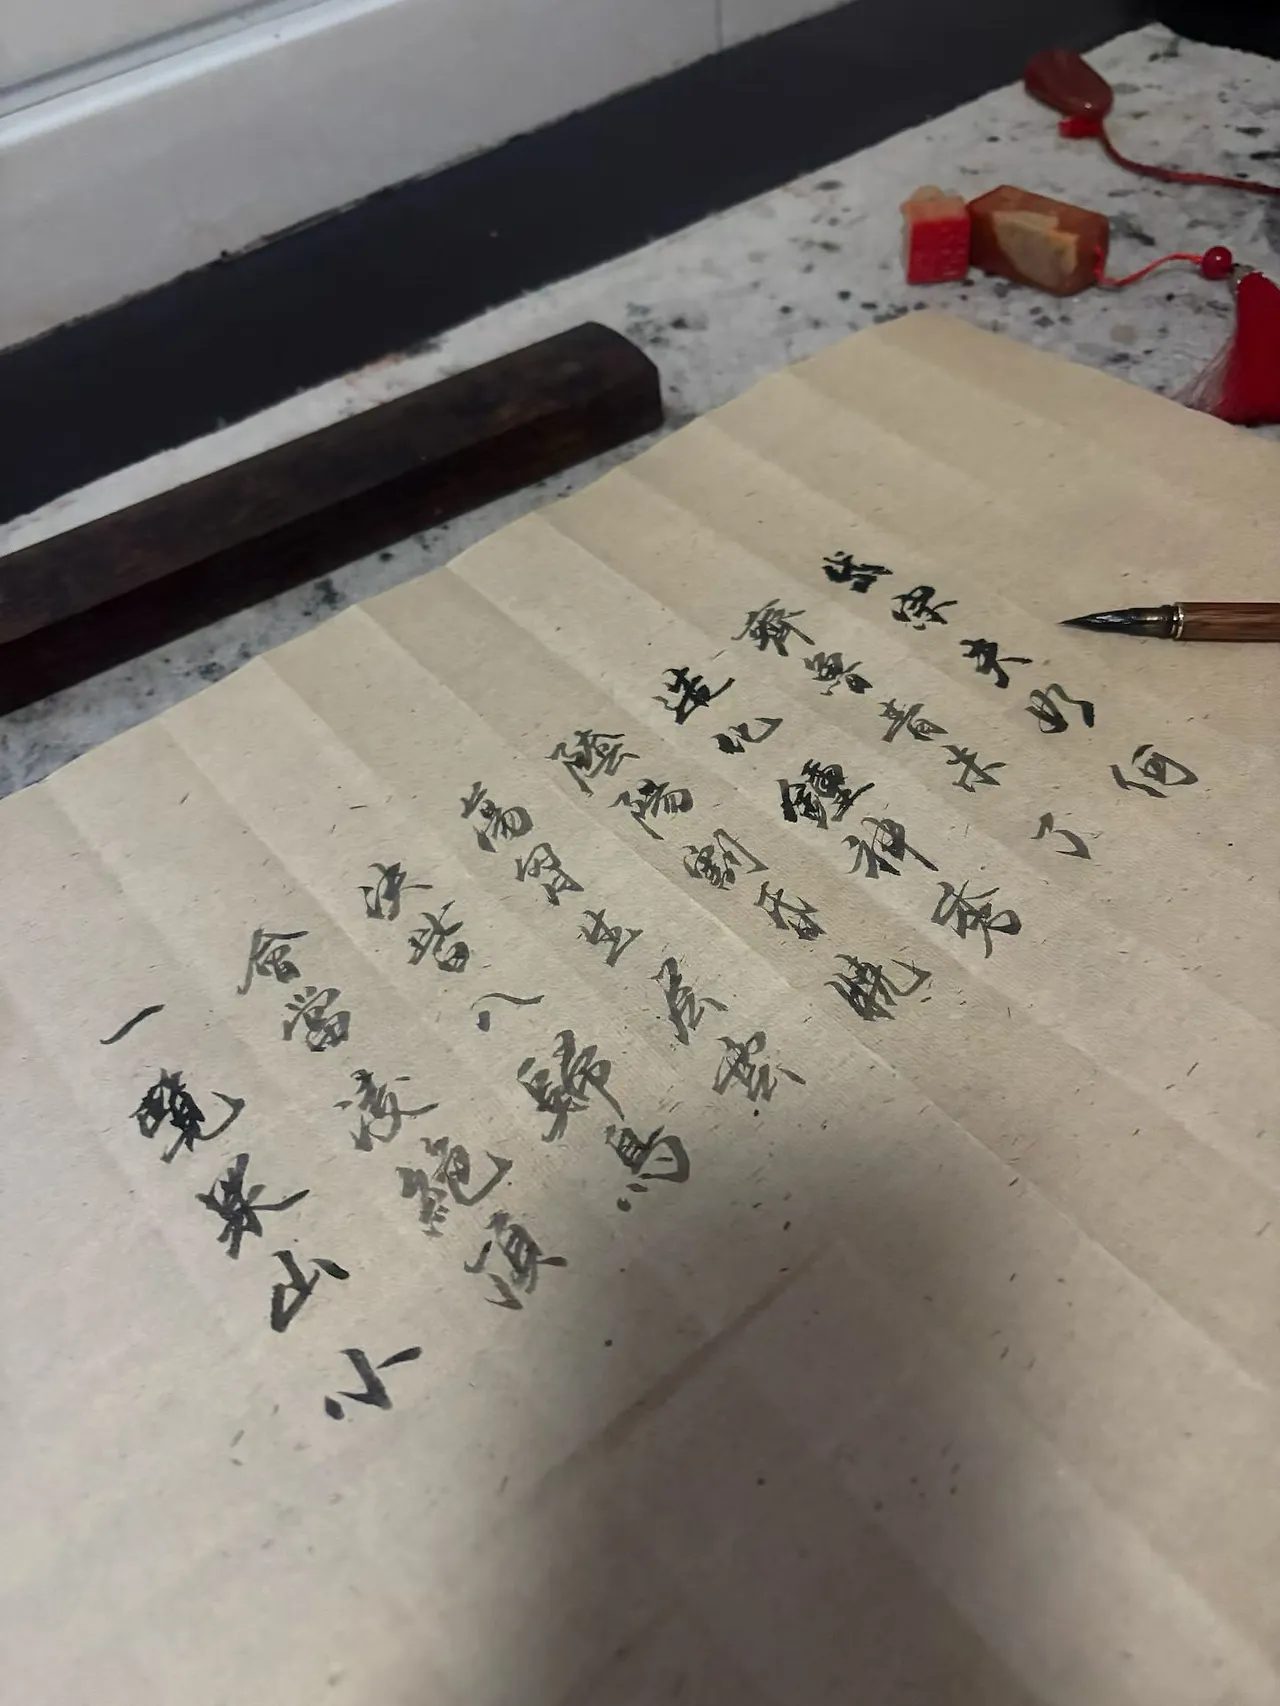 岱宗夫如何
齊魯青未了
造化鍾神秀
陰陽割昏曉
蕩胸生层雲
決眥入歸鳥
會當凌絕頂
一覽眾山小